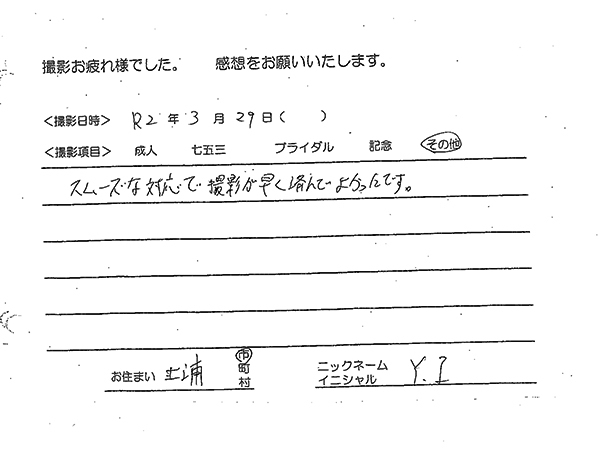 撮影お疲れ様でした。 感想をお願いいたします。
<撮影日時> R2 年 3 月 29 日( )
<撮影項目> 成人 七五三 ブライダル 記念 その他
スムーズな対応で撮影が早く済んでよかったです。
お住まい 土浦 市町村 ニックネーム イニシャル Y.I